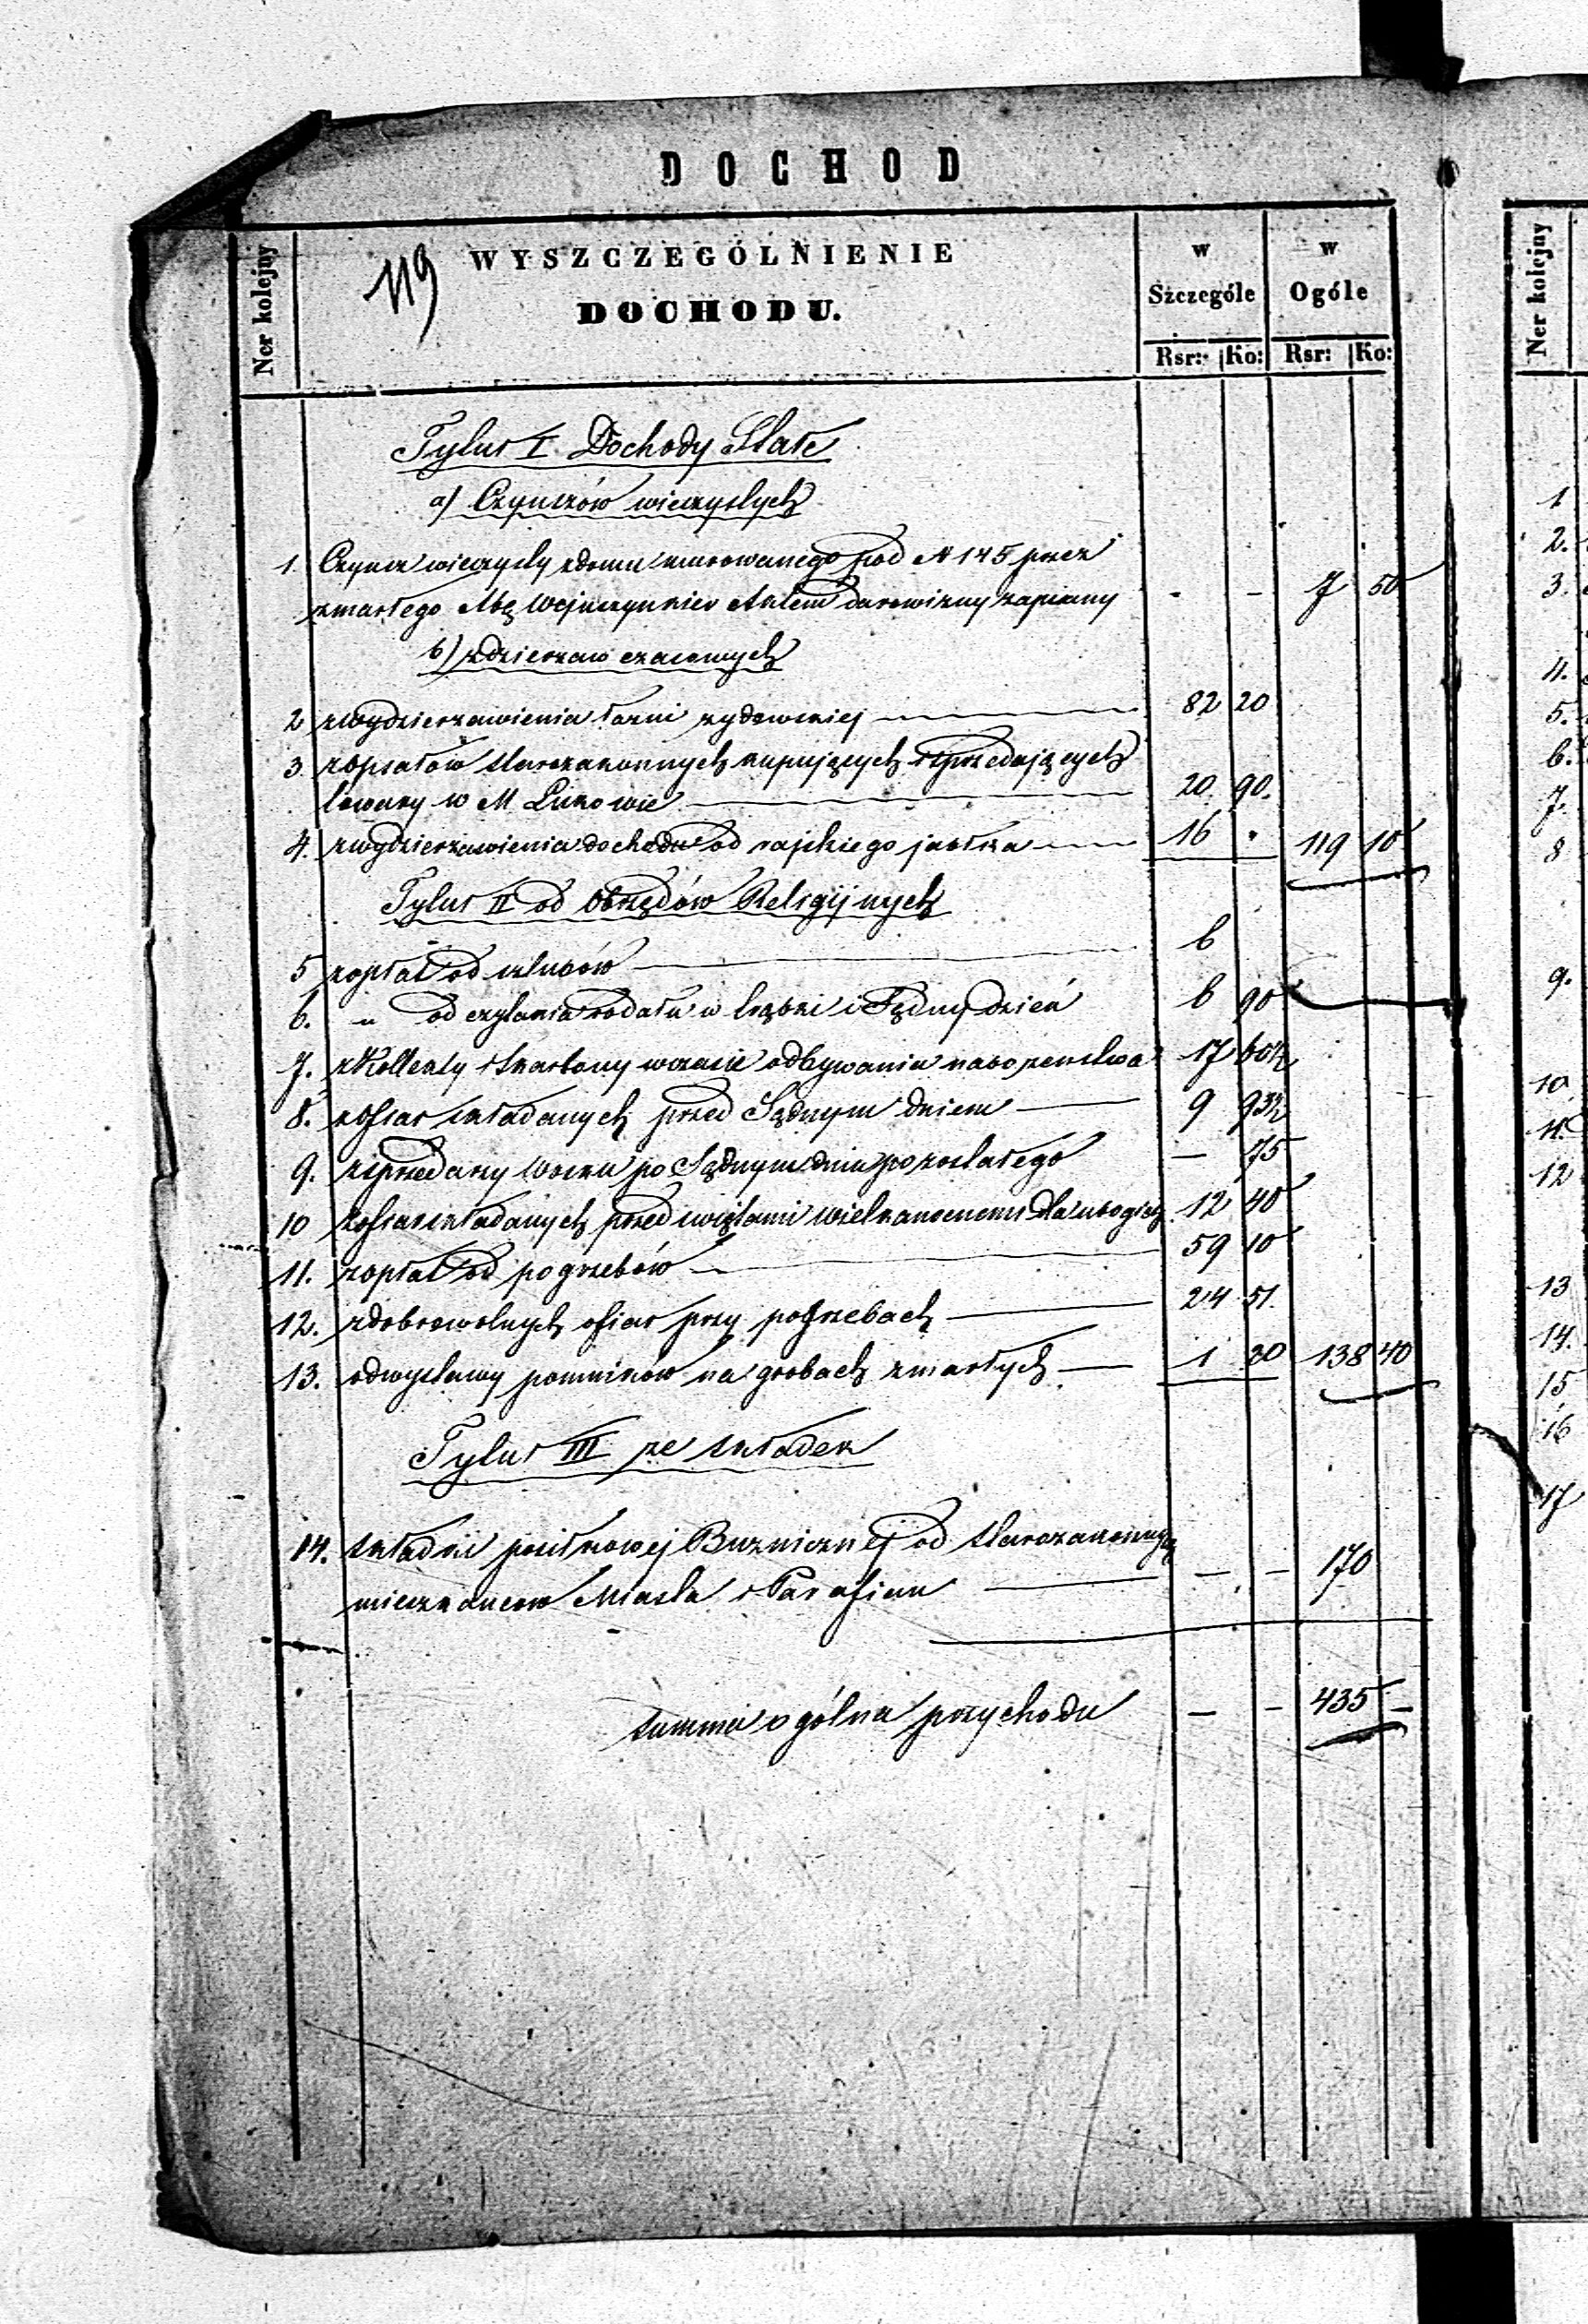 DOCHOD
Ner kolejny
119
WYSZCZEGÓLNIENIE
DOCHODU.
w Szczególe
w Ogóle
Rsr: Ko: Rsr: Ko:
Tytuł I Dochody Stałe
a) Czynszów wieczystych
1. Czynsz wieczysty z domu murowanego pod N 145 przez
zmarłego darowizny zapisany - - 7 50
b) z dzierzaw czasowych
2 z wydzierzawienia łazni zydowskiej 82 20
3 z opłatów starozakonnych kupujących i sprzedających
towary w M Łukowie 20 90.
4. z wydzierzawienia dochodu od rajskiego jabłka 16 " 119 10
Tytuł II od Obrzędów Religijnych
5 z opłat od szlubów 6
6. " od czytania rodału w trąbki i Sądny dzień 6 90
7. z Kollekty i Skarbony w czasie odbywania nabozenstwa 17 60½
8. z ofiar składanych przed Sądnym dniem 9 93½
9. z sprzedazy wosku po Sądnym dniu pozostałego — 75
10 z ofiar składanych przed swiętami wielkanocnemi dla ubogich 12 40
11. z opłat od pogrzebów 59 10
12. z dobrowolnych ofiar przy pogrzebach 24 51
13. od wystawy pomników na grobach zmarłych 1 20 138 40
Tytuł III ze składek
14. składki posiłkowej Bużnicznej od starozakonnych
mieszkancow Miasta i Parafian — - 170
summa ogólna przychodu — - 435 —
Ner kolejny
1
2.
3.
4.
5.
6.
7.
8
9.
10
11.
12
13
14.
15
16
17